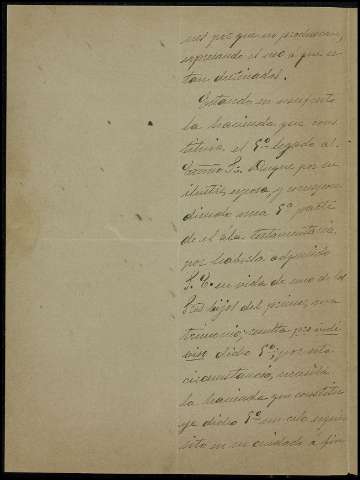 nes por que no producen,
expresando el uso a que es-
tan destinados.
Estando en usufructo
la hacienda que cons-
tituia el 5º legado al
Exmo Sr. Duque por su
ilustre esposa, y correspon-
diendo una 5ª parte
de el á la testamentaria
por haberla adquirido
S. E. en vida de uno de los
Sres hijos del primer ma-
trimonio, resulta proindi-
viso dicho 5º; por esta
circunstancia, necesita
la hacienda que constitu-
ye dicho 5º un celo exqui-
sito en su cuidado a fin